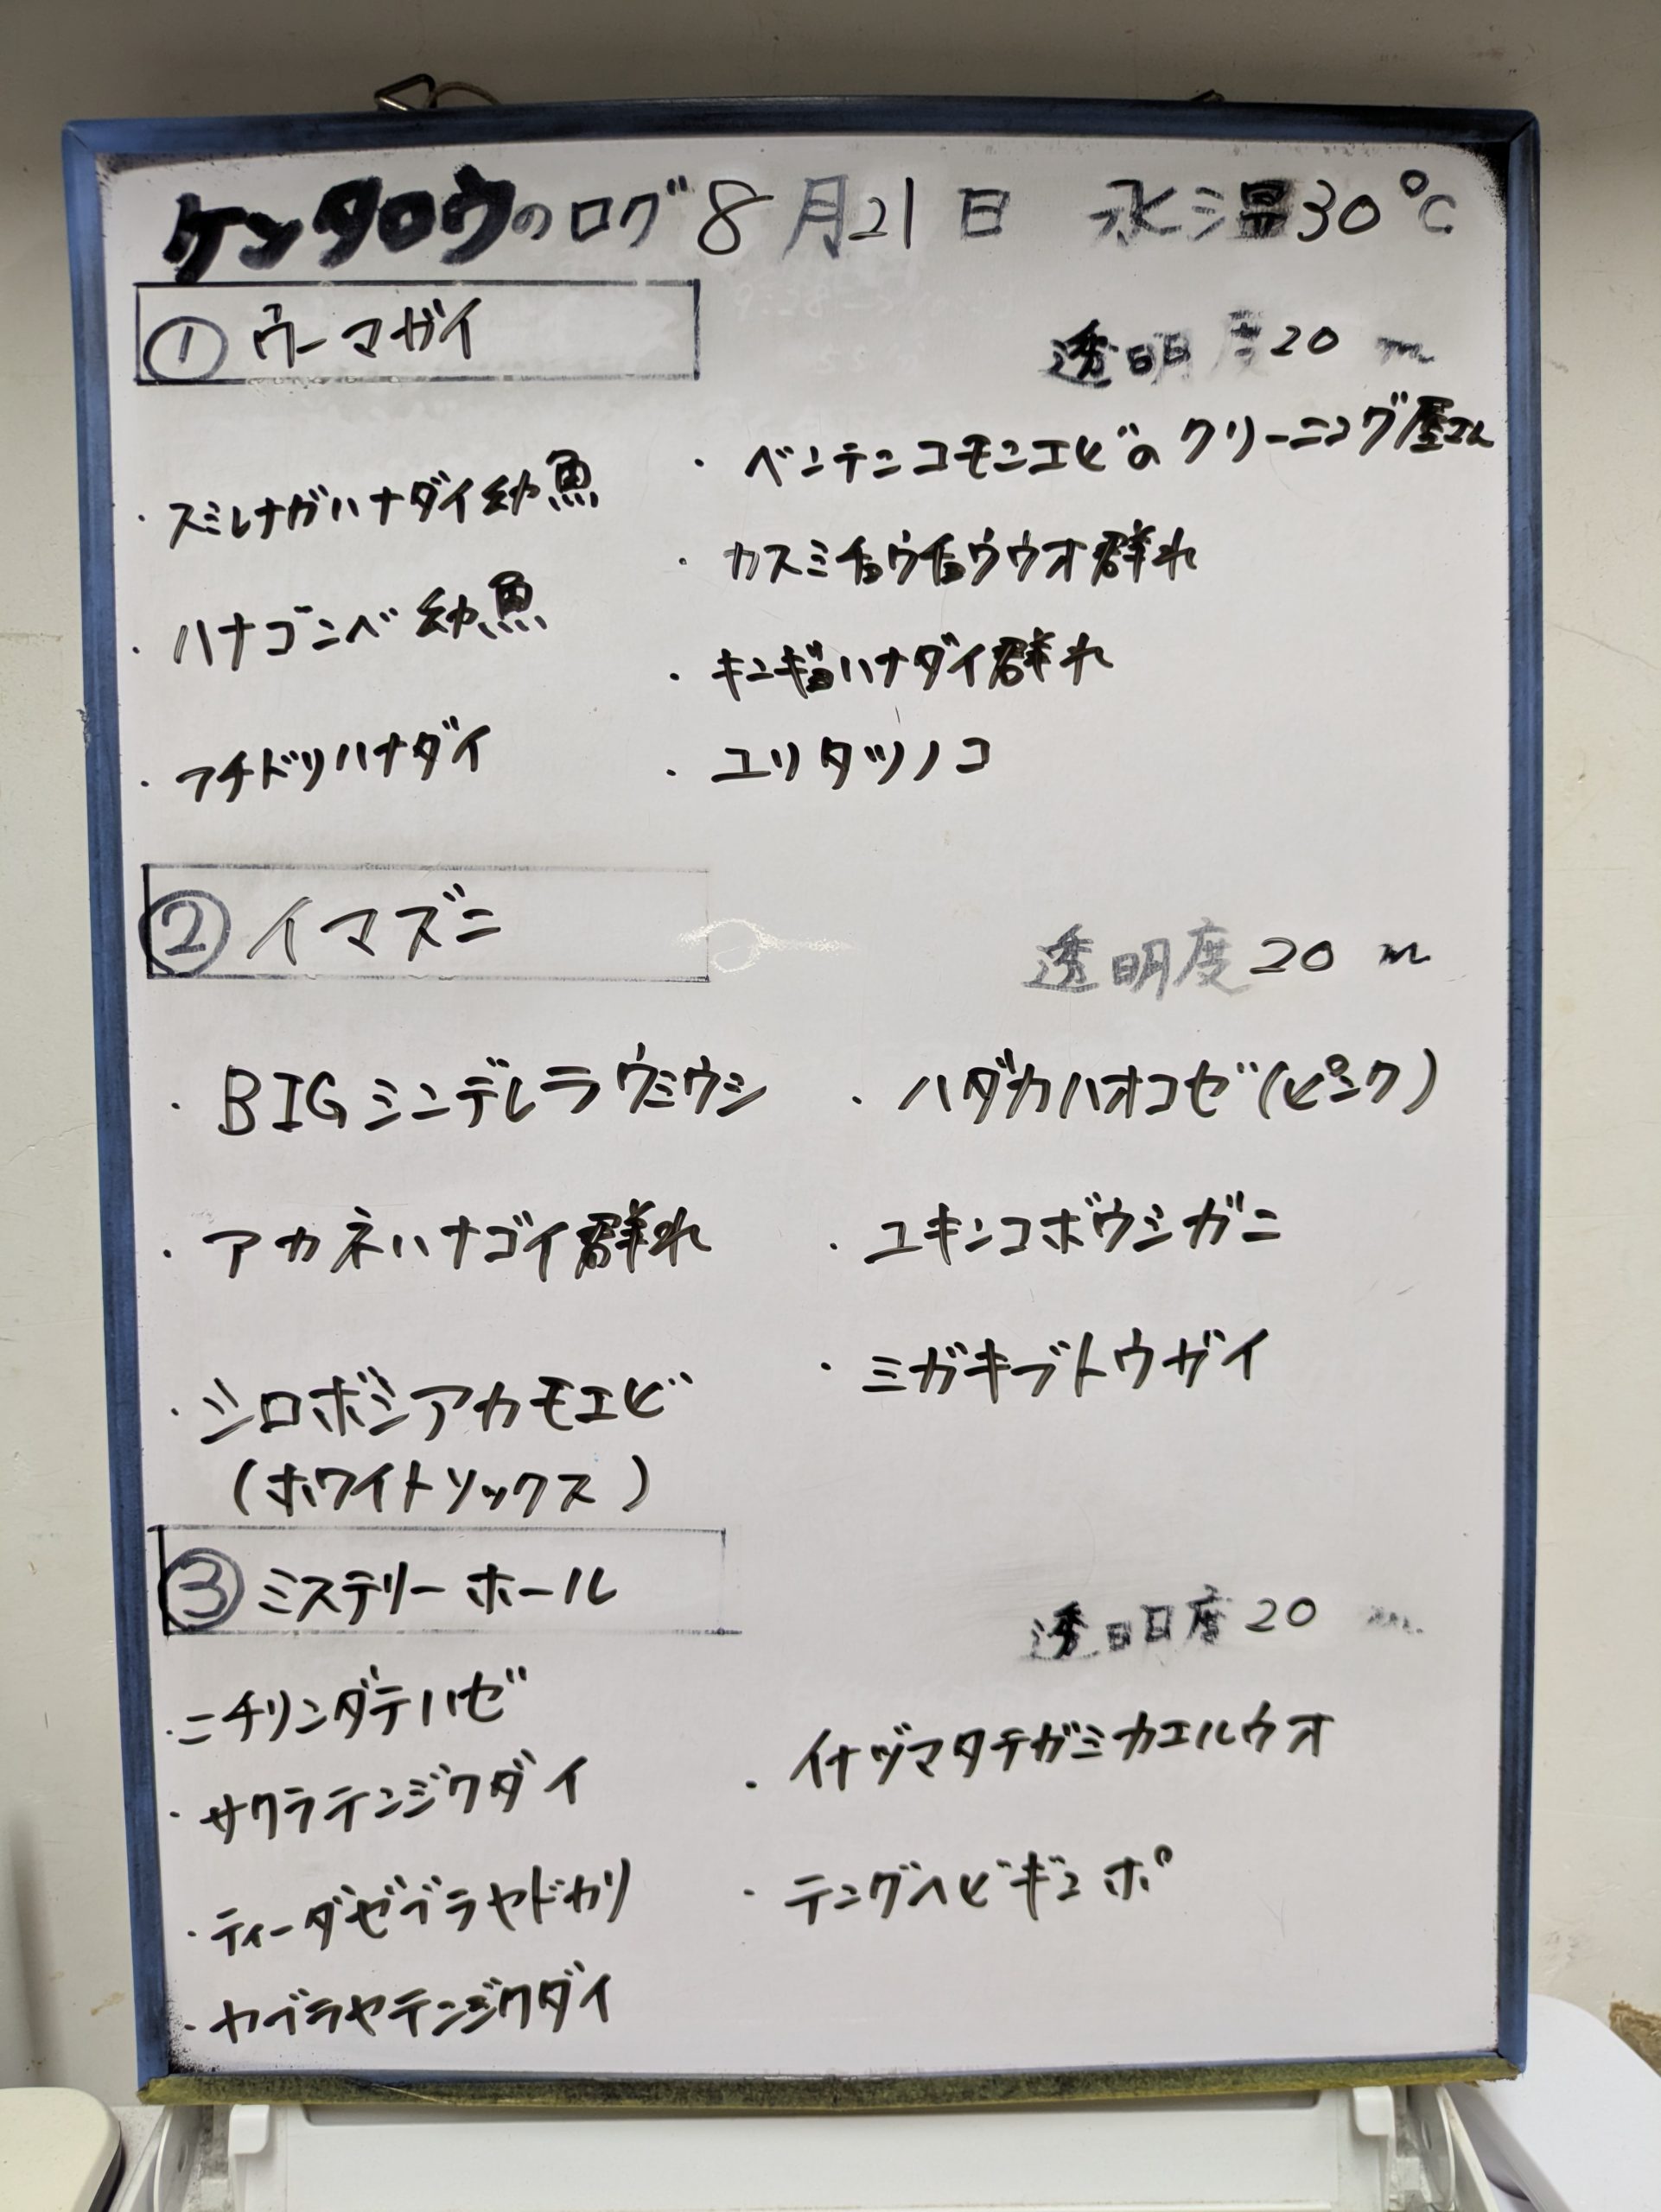 ケンタロウのログ 8月21日 水温30℃
① ウーマガイ
透明度20m
・スミレナガハナダイ幼魚
・ハナゴンベ幼魚
・フチドリハナダイ
・ベンテンコモンエビのクリーニング屋さん
・カスミチョウチョウウオ群れ
・キンギョハナダイ群れ
・ユリタツノコ
② イマズニ
透明度20m
・BIGシンデレラウミウシ
・アカネハナゴイ群れ
・シロボシアカモエビ
(ホワイトソックス)
・ハダカハオコゼ(ピンク)
・ユキンコボウシガニ
・ミガキブトウガイ
③ ミステリーホール
透明度20m
・ニチリンダテハゼ
・サクラテンジクダイ
・ティーダゼブラヤドカリ
・カブラヤテンジクダイ
・イナヅマタテガミカエルウオ
・テングヘビギンポ